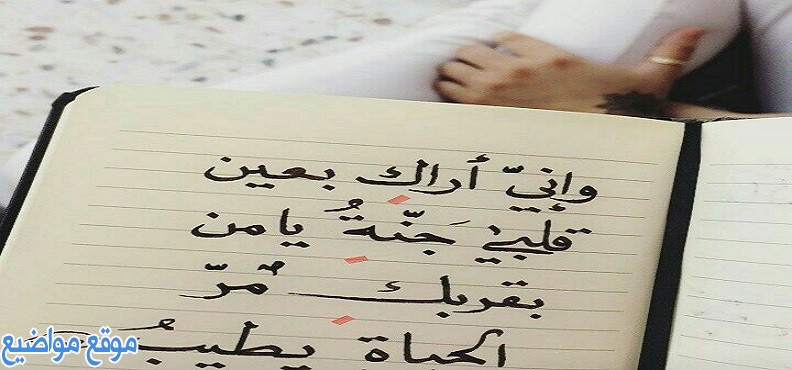 وإنيّ أراك بعين
قلبي جَنّةُ يا من
بقربك مُرّ
الحياة يطيبُ
موقع مواضيع